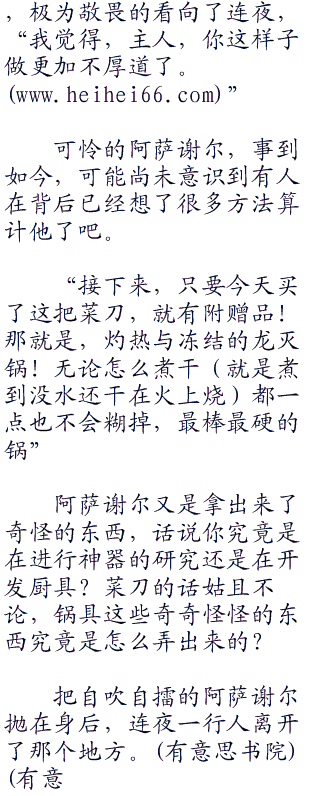 ，极为敬畏的看向了连夜，
“我觉得，主人，你这样子
做更加不厚道了。
(www.heihei66.com)”
可怜的阿萨谢尔，事到
如今，可能尚未意识到有人
在背后已经想了很多方法算
计他了吧。
“接下来，只要今天买
了这把菜刀，就有附赠品！
那就是，灼热与冻结的龙灭
锅！无论怎么煮干（就是煮
到没水还干在火上烧）都一
点也不会糊掉，最棒最硬的
锅”
阿萨谢尔又是拿出来了
奇怪的东西，话说你究竟是
在进行神器的研究还是在开
发厨具？菜刀的话姑且不
论，锅具这些奇奇怪怪的东
西究竟是怎么弄出来的？
把自吹自擂的阿萨谢尔
抛在身后，连夜一行人离开
了那个地方。(有意思书院)
(有意